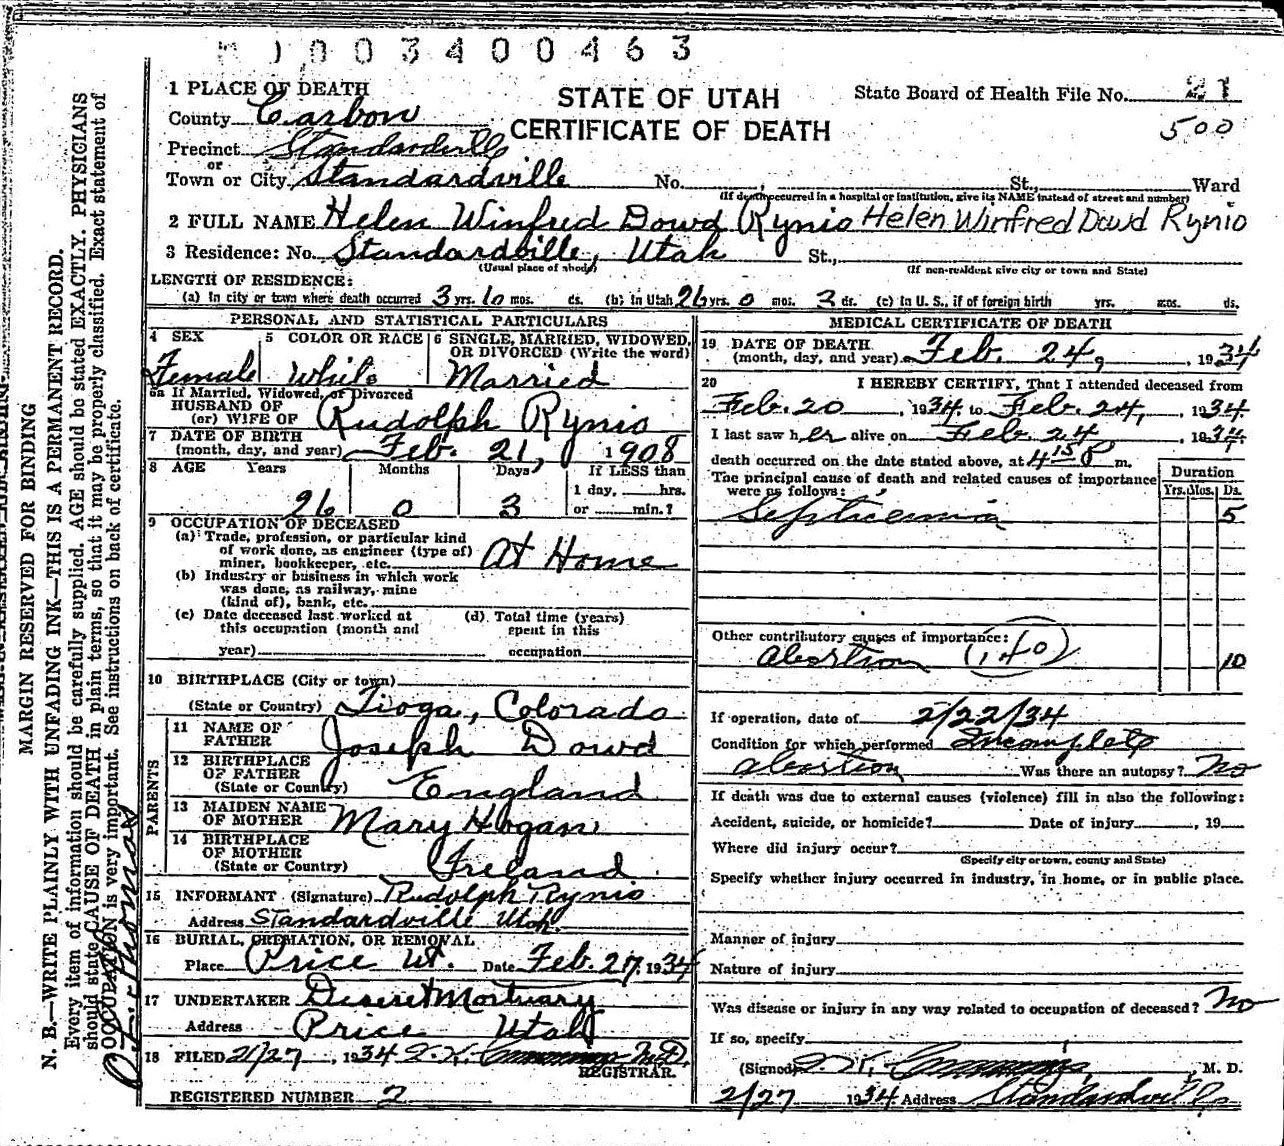 003400463
1 PLACE OF DEATH
STATE OF UTAH
CERTIFICATE OF DEATH
State Board of Health File No. 21
500
County Carbon
Precinct Standardville
or
Town or City Standardville No. , St., Ward
(If death occurred in a hospital or institution, give its NAME instead of street and number)
2 FULL NAME Helen Winfred Dowd Rynio Helen Winfred Dowd Rynio
3 Residence: No. Standardville, Utah St.,
(Usual place of abode) (If non-resident give city or town and State)
LENGTH OF RESIDENCE:
(a) In city or town where death occurred 3 yrs. 10 mos. ds. (b) In Utah 26 yrs. 0 mos. 3 ds. (c) In U. S., if of foreign birth yrs. mos. ds.
PERSONAL AND STATISTICAL PARTICULARS
4 SEX Female
5 COLOR OR RACE White
6 SINGLE, MARRIED, WIDOWED, OR DIVORCED (Write the word) Married
6a If Married, Widowed, or Divorced
HUSBAND OF
(or) WIFE OF Rudolph Rynio
7 DATE OF BIRTH
(month, day, and year) Feb. 21, 1908
8 AGE Years Months Days If LESS than
1 day, hrs.
26 0 3 or min.?
9 OCCUPATION OF DECEASED
(a) Trade, profession, or particular kind
of work done, as engineer (type of)
miner, bookkeeper, etc. At Home
(b) Industry or business in which work
was done, as railway, mine
(kind of), bank, etc.
(c) Date deceased last worked at
this occupation (month and
year)
(d) Total time (years)
spent in this
occupation
10 BIRTHPLACE (City or town)
(State or Country) Tioga, Colorado
PARENTS
11 NAME OF
FATHER Joseph Dowd
12 BIRTHPLACE
OF FATHER
(State or Country) England
13 MAIDEN NAME
OF MOTHER Mary Hogan
14 BIRTHPLACE
OF MOTHER
(State or Country) Ireland
15 INFORMANT (Signature) Rudolph Rynio
Address Standardville Utah.
16 BURIAL, CREMATION, OR REMOVAL
Place Price Ut. Date Feb. 27, 1934
17 UNDERTAKER Deseret Mortuary
Address Price Utah
18 FILED 2/27, 1934 M.D.
REGISTRAR.
REGISTERED NUMBER 2
MEDICAL CERTIFICATE OF DEATH
19 DATE OF DEATH
(month, day, and year) Feb. 24, , 1934
20 I HEREBY CERTIFY, That I attended deceased from
Feb. 20 , 1934 to Feb. 24, , 1934
I last saw her alive on Feb. 24 , 1934
death occurred on the date stated above, at 4 15 P m.
The principal cause of death and related causes of importance
were as follows:
Duration
Yrs. Mos. Ds.
Septicemia 5
Other contributory causes of importance:
Abortion (140) 10
If operation, date of 2/22/34
Condition for which performed Incomplete
abortion Was there an autopsy? No
If death was due to external causes (violence) fill in also the following:
Accident, suicide, or homicide? Date of injury , 19
Where did injury occur?
(Specify city or town, county and State)
Specify whether injury occurred in industry, in home, or in public place.
Manner of injury
Nature of injury
Was disease or injury in any way related to occupation of deceased? No
If so, specify
(Signed) , M. D.
2/27 1934 Address Standardville
MARGIN RESERVED FOR BINDING
N. B.—WRITE PLAINLY WITH UNFADING INK—THIS IS A PERMANENT RECORD.
Every item of information should be carefully supplied. AGE should be stated EXACTLY. PHYSICIANS
should state CAUSE OF DEATH in plain terms, so that it may be properly classified. Exact statement of
OCCUPATION is very important. See instructions on back of certificate.